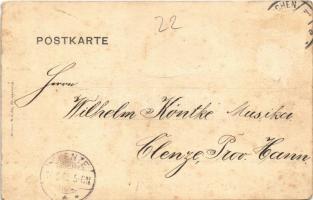 22
CHEN
POSTKARTE
Herrn
Wilhelm Köntke Musiker
Clenze, Prov. Hann.
CLENZE